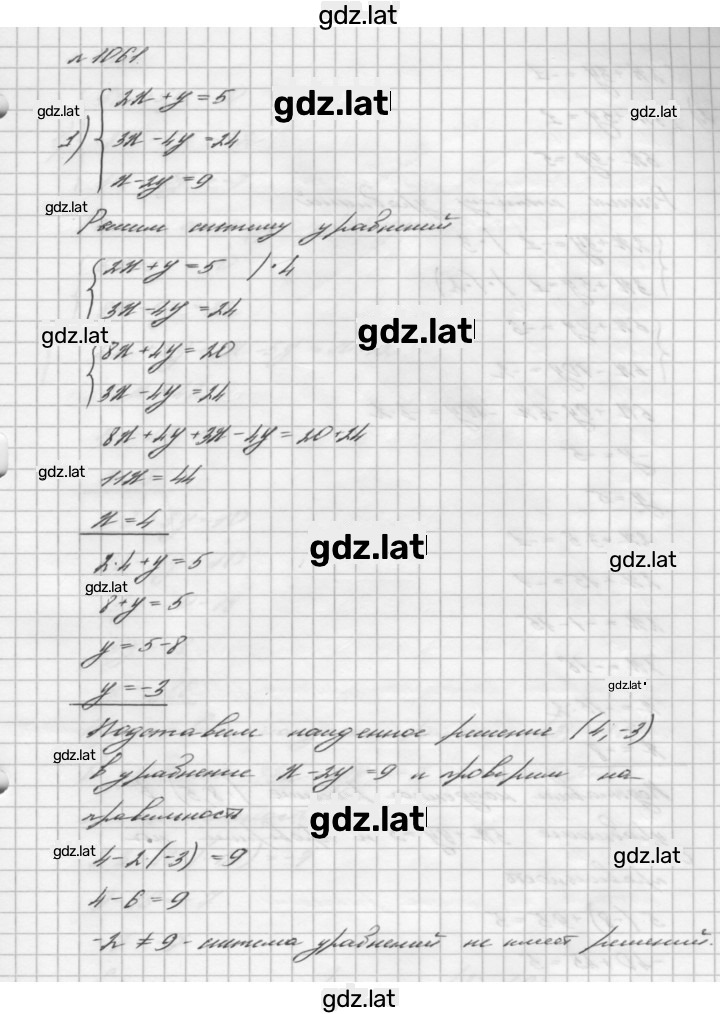 gdz.lat
№ 1061.
gdz.lat
1) { 2x + y = 5
gdz.lat
gdz.lat
3x - 4y = 24
x - 2y = 9
gdz.lat
Решим систему уравнений
{ 2x + y = 5 | · 4
3x - 4y = 24
gdz.lat
gdz.lat
{ 8x + 4y = 20
3x - 4y = 24
8x + 4y + 3x - 4y = 20 + 24
gdz.lat
11x = 44
x = 4
gdz.lat
2 · 4 + y = 5
gdz.lat
gdz.lat
8 + y = 5
y = 5 - 8
y = -3
gdz.lat
Подставим найденное решение (4; -3)
gdz.lat
в уравнение x - 2y = 9 и проверим на
правильность
gdz.lat
gdz.lat
4 - 2 · (-3) = 9
gdz.lat
4 - 6 = 9
-2 ≠ 9 - система уравнений не имеет решений.
gdz.lat